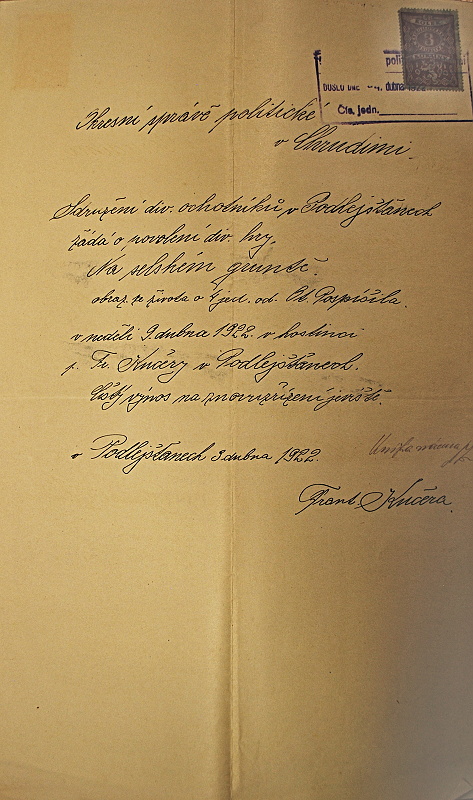 Okresní správě politické
v Chrudimi.
DOŠLO DNE dubna 1922
Čís. jedn.
Sdružení div. ochotníků v Podlejštanech
žádá o povolení div. hry,
Na selském gruntě.
obraz ze života o 4 jed. od. Et. Pospíšila.
v neděli 9. dubna 1922. v hostinci
p. Fr. Kučery v Podlejštanech.
Čistý výnos na znovuzřízení jeviště.
v Podlejštanech 3 dubna 1922.
Frant. Kučera.